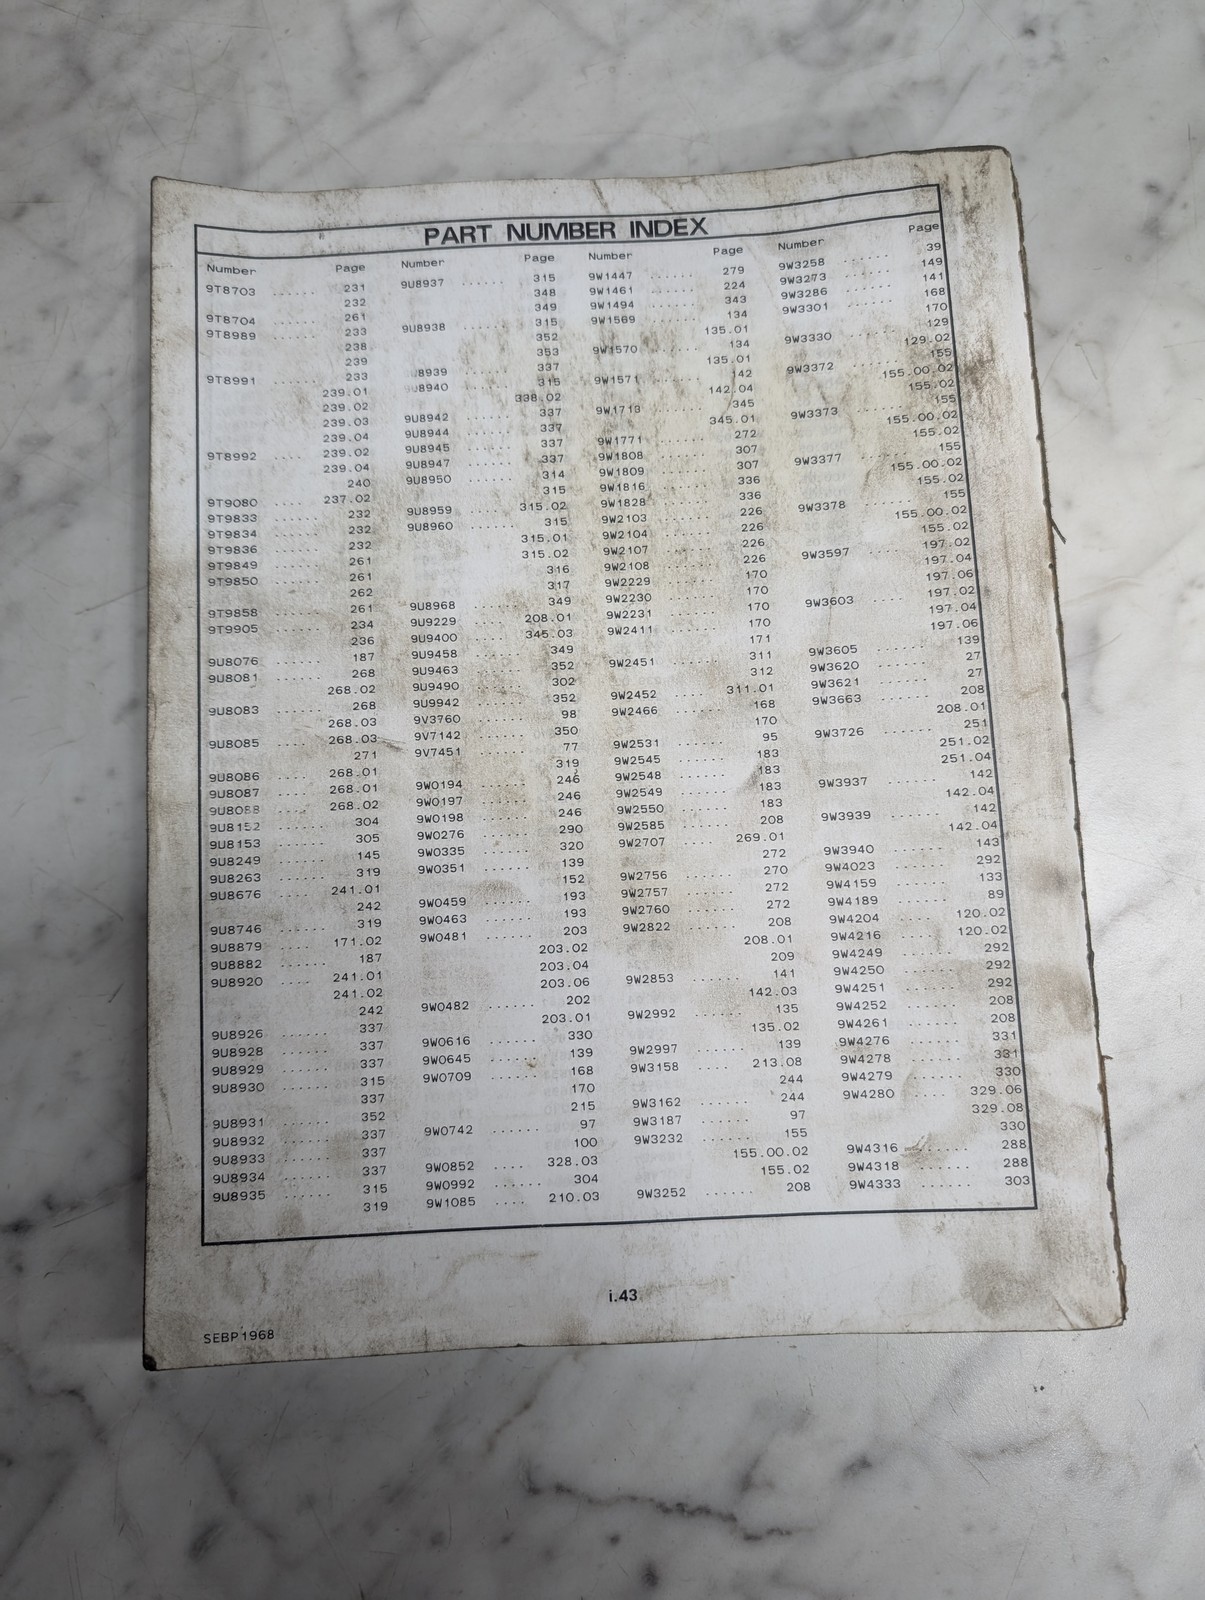 PART NUMBER INDEX
Number Page
9T8703 ...... 231
232
9T8704 ...... 261
9T8989 ...... 233
238
239
9T8991 ...... 233
239.01
239.02
239.03
239.04
9T8992 .... 239.02
239.04
240
9T9080 .... 237.02
9T9833 ...... 232
9T9834 ...... 232
9T9836 ...... 232
9T9849 ...... 261
9T9850 ...... 261
262
9T9858 ...... 261
9T9905 ...... 234
236
9U8076 ...... 187
9U8081 ...... 268
268.02
9U8083 ...... 268
268.03
9U8085 .... 268.03
271
9U8086 .... 268.01
9U8087 .... 268.01
9U8088 .... 268.02
9U8152 ...... 304
9U8153 ...... 305
9U8249 ...... 145
9U8263 ...... 319
9U8676 .... 241.01
242
9U8746 ...... 319
9U8879 .... 171.02
9U8882 ...... 187
9U8920 .... 241.01
241.02
242
9U8926 ...... 337
9U8928 ...... 337
9U8929 ...... 337
9U8930 ...... 315
337
9U8931 ...... 352
9U8932 ...... 337
9U8933 ...... 337
9U8934 ...... 337
9U8935 ...... 315
319
Number Page
9U8937 ...... 315
348
349
9U8938 ...... 315
352
353
8939 ...... 337
8940 ...... 315
338.02
9U8942 ...... 337
9U8944 ...... 337
9U8945 ...... 337
9U8947 ...... 337
9U8950 ...... 314
315
9U8959 .... 315.02
9U8960 ...... 315
315.01
315.02
316
317
9U8968 ...... 349
9U9229 .... 208.01
9U9400 .... 345.03
9U9458 ...... 349
9U9463 ...... 352
9U9490 ...... 302
9U9942 ...... 352
9V3760 ...... 98
9V7142 ...... 350
9V7451 ...... 77
319
9W0194 ...... 246
9W0197 ...... 246
9W0198 ...... 246
9W0276 ...... 290
9W0335 ...... 320
9W0351 ...... 139
152
9W0459 ...... 193
9W0463 ...... 193
9W0481 ...... 203
203.02
203.04
203.06
9W0482 ...... 202
203.01
9W0616 ...... 330
9W0645 ...... 139
9W0709 ...... 168
170
215
9W0742 ...... 97
100
9W0852 .... 328.03
9W0992 ...... 304
9W1085 .... 210.03
Number Page
9W1447 ...... 279
9W1461 ...... 224
9W1494 ...... 343
9W1569 ...... 134
135.01
9W1570 ...... 134
135.01
9W1571 ...... 142
142.04
9W1713 ...... 345
345.01
9W1771 ...... 272
9W1808 ...... 307
9W1809 ...... 307
9W1816 ...... 336
9W1828 ...... 336
9W2103 ...... 226
9W2104 ...... 226
9W2107 ...... 226
9W2108 ...... 226
9W2229 ...... 170
9W2230 ...... 170
9W2231 ...... 170
9W2411 ...... 170
171
9W2451 ...... 311
312
9W2452 .... 311.01
9W2466 ...... 168
170
9W2531 ...... 95
9W2545 ...... 183
9W2548 ...... 183
9W2549 ...... 183
9W2550 ...... 183
9W2585 ...... 208
9W2707 .... 269.01
272
9W2756 ...... 270
9W2757 ...... 272
9W2760 ...... 272
9W2822 ...... 208
208.01
209
9W2853 ...... 141
142.03
9W2992 ...... 135
135.02
9W2997 ...... 139
9W3158 .... 213.08
244
9W3162 ...... 244
9W3187 ...... 97
9W3232 ...... 155
155.00.02
155.02
9W3252 ...... 208
Number Page
9W3258 ...... 39
9W3273 ...... 149
9W3286 ...... 141
9W3301 ...... 168
170
9W3330 ...... 129
129.02
9W3372 ...... 155
155.00.02
155.02
9W3373 ...... 155
155.00.02
155.02
9W3377 ...... 155
155.00.02
155.02
9W3378 ...... 155
155.00.02
155.02
9W3597 .... 197.02
197.04
197.06
9W3603 .... 197.02
197.04
197.06
9W3605 ...... 139
9W3620 ...... 27
9W3621 ...... 27
9W3663 ...... 208
208.01
9W3726 ...... 251
251.02
251.04
9W3937 ...... 142
142.04
9W3939 ...... 142
142.04
9W3940 ...... 143
9W4023 ...... 292
9W4159 ...... 133
9W4189 ...... 89
9W4204 .... 120.02
9W4216 .... 120.02
9W4249 ...... 292
9W4250 ...... 292
9W4251 ...... 292
9W4252 ...... 208
9W4261 ...... 208
9W4276 ...... 331
9W4278 ...... 331
9W4279 ...... 330
9W4280 .... 329.06
329.08
330
9W4316 ...... 288
9W4318 ...... 288
9W4333 ...... 303
i.43
SEBP1968